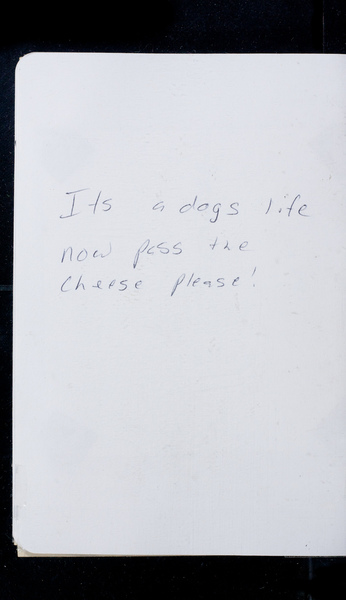 Its a dogs life
now pass the
cheese please!